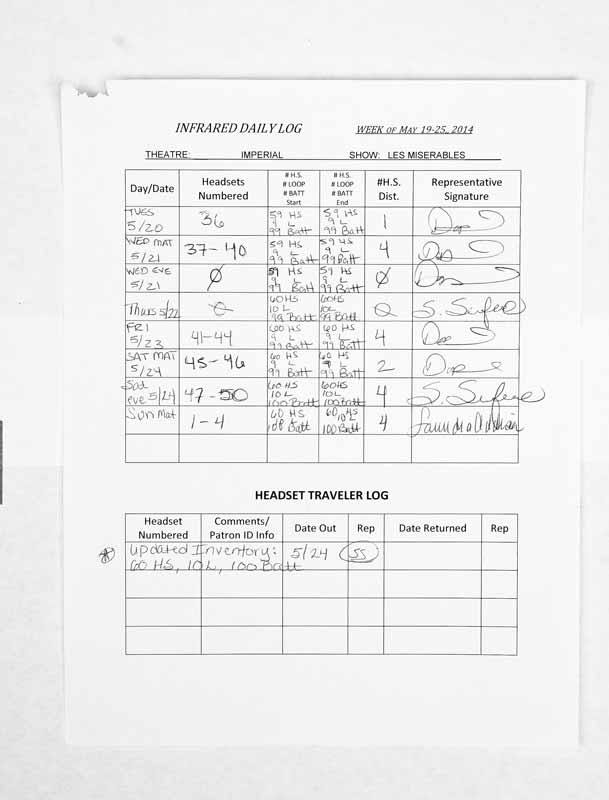 INFRARED DAILY LOG WEEK OF MAY 19-25, 2014
THEATRE: IMPERIAL SHOW: LES MISERABLES
Day/Date Headsets Numbered # H.S. # LOOP # BATT Start # H.S. # LOOP # BATT End #H.S. Dist. Representative Signature
TUES 5/20 36 59 HS 9 L 99 Batt 59 HS 9 L 99 Batt 1
WED MAT 5/21 37-40 59 HS 9 L 99 Batt 59 HS 9 L 99 Batt 4
WED EVE 5/21 Ø 59 HS 9 L 99 Batt 59 HS 9 L 99 Batt Ø
Thurs 5/22 Ø 60 HS 10 L 99 Batt 60 HS 10 L 99 Batt Ø
FRI 5/23 41-44 60 HS 9 L 99 Batt 60 HS 9 L 99 Batt 4
SAT MAT 5/24 45-46 60 HS 9 L 99 Batt 60 HS 9 L 99 Batt 2
Sat eve 5/24 47-50 60 HS 10 L 100 Batt 60 HS 10 L 100 Batt 4
Sun Mat 1-4 60 HS 100 Batt 60 HS 10 L 100 Batt 4
HEADSET TRAVELER LOG
Headset Numbered Comments/ Patron ID Info Date Out Rep Date Returned Rep
Updated Inventory: 5/24 SS
60 HS, 10 L, 100 Batt